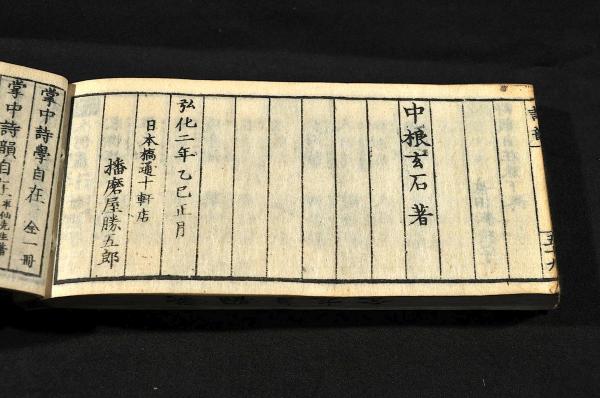 詩韻
五十九
中根玄石著
弘化二年乙巳正月
日本橋通十軒店
播磨屋勝五郎
掌中詩學自在 全一冊
掌中詩韻自